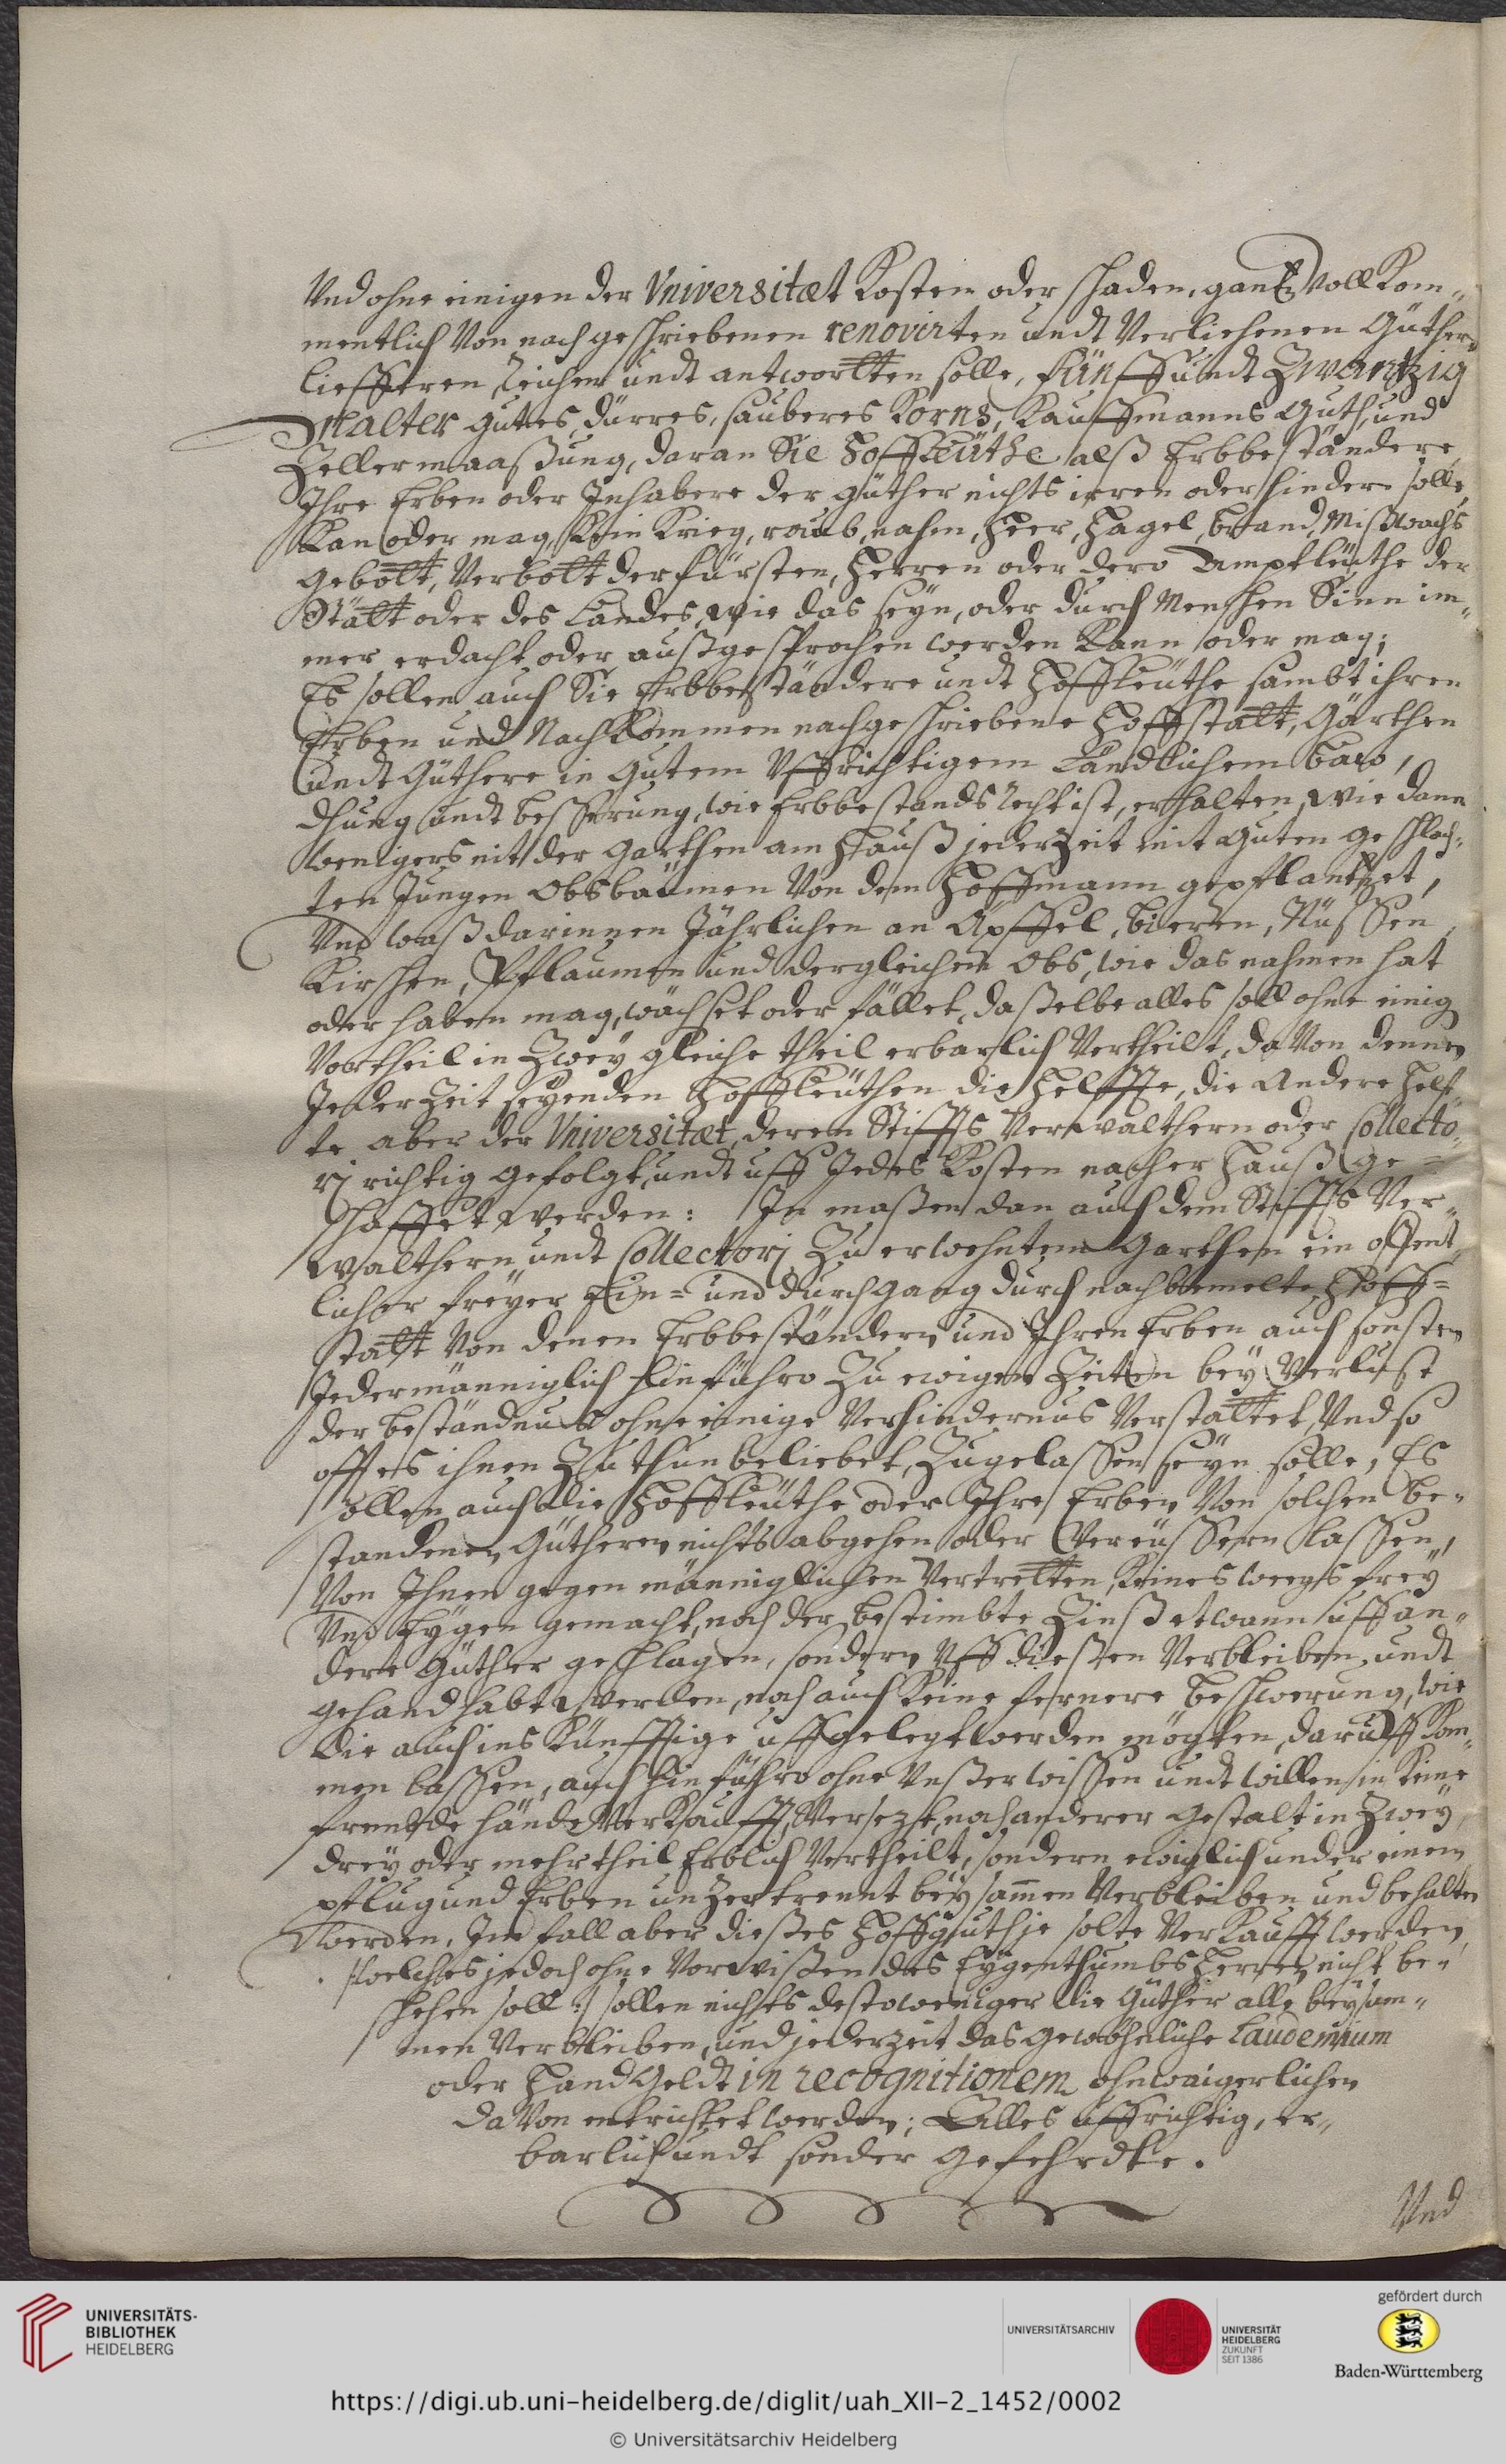 Und ohne einigen der Vniversitæt Kosten oder schaden, gantz Vollkom„
mentlich Von nachgeschriebenen renovirten undt Verliehenen Güthern
lieffern reichen undt antwortten solle, Fünff undt Zwantzig
Malter gutes dürres, sauberes Korns, Kauffmanns Guth, und
Zellermaaßung, daran Sie Hoffleüthe alß Erbbeständere
Ihre Erben oder Inhabere der güther nichts irren oder hindern solle,
kan oder mag, kein Krieg, raub, nahm, Heer, Hagel, brand, Mißwachs
gebott, Verbott der fürsten, Herren oder dero Amptleüthe der
Statt oder des Landes, wie das seyn, oder durch Menschen Sinn im„
mer erdacht oder außgesprochen werden kann oder mag;
Es sollen auch Sie Erbbeständere undt Hoffleüthe sambt ihren
Erben und Nachkommen nachgeschriebene Hoffstatt, Gärthen
undt Güthere in Gutem Vffrichtigem Ländlichem baw,
dhung undt besserung, wie Erbbestands recht ist, erhalten, wie dann
wenigers nit der Garthen am Hauß jederzeit mit guten geschlach„
ten Jungen Obsbäumen Von dem Hoffmann gepflantzet,
Und waß darinnen Jährlichen an Äpffel, bieren, Nüssen,
Kirschen, Pflaumen und dergleichen Obs, wie das nahmen hat
oder haben mag, wächset oder fället, dasselbe alles soll ohne einig
Vortheil in Zwey gleiche theil erbarlich Vertheilt, daVon dennen
Jeder Zeit seyenden Hoffleüthen die Helffte, die Andere Helff„
te aber der Vniversitæt, deren Stiffts Verwalthern oder Collecto„
rj richtig gefolgt, undt uff Jedes Kosten nacher Hauß ge=
schaffet werden: In maßen dan auch dem Stiffts Ver„
walthern undt Collectorj Zu erwehntem Garthen ein offent„
licher freyer Ein= und durchgang durch nachbemelte Hoff=
statt Von denen Erbbeständern und Ihren Erben auch sonsten
Jedermänniglich hinführo Zu ewigen Zeiten bey Verlust
der beständnus ohne einige Verhindernus Verstattet, Und so
offt es ihnen Zu thun beliebet, Zugelassen seyn solle, Es
sollen auch die Hoffleüthe oder Ihre Erben Von solchen be„
standenen Güthern nichts abgehen oder Vereüssern lassen,
Von Ihnen gegen männiglichen Vertretten, keines weegs frey
Und Eygen gemacht, noch der bestimbte Zinß etwann uff an„
dere Güther geschlagen, sondern Vff dießen Verbleiben, undt
gehandhabt werden, noch auch keine fernere beschwerung, wie
die auch ins künfftige uffgelegt werden mögten, daruff kom„
men lassen, auch hinführo ohne Unßer wissen undt willen in keine
frembde hände Verkaufft, Versezt, noch anderer gestalt in Zwey,
drey oder mehr theil Erblich Vertheilt, sondern ewiglich under einem
pflug und Erben unZertrennt beysammen Verbleiben und behalten
werden, Im fall aber dießes Hoffguth je solte Verkaufft werden,
/: welches jedoch ohne Vorwißen des Eygenthumbs Herren nicht be„
schehen soll :/ sollen nichts destoweniger die Güther alle beysam„
men Verbleiben, und jederzeit das gewöhnliche Laudemium
oder Handgeldt in recognitionem ohnwaigerlichen
daVon entrichtet werden; Alles uffrichtig, er„
barlich undt sonder Gefehrdte.
Und
UNIVERSITÄTS-
BIBLIOTHEK
HEIDELBERG
UNIVERSITÄTSARCHIV
UNIVERSITÄT
HEIDELBERG
ZUKUNFT
SEIT 1386
gefördert durch
Baden-Württemberg
https://digi.ub.uni-heidelberg.de/diglit/uah_XII-2_1452/0002
© Universitätsarchiv Heidelberg